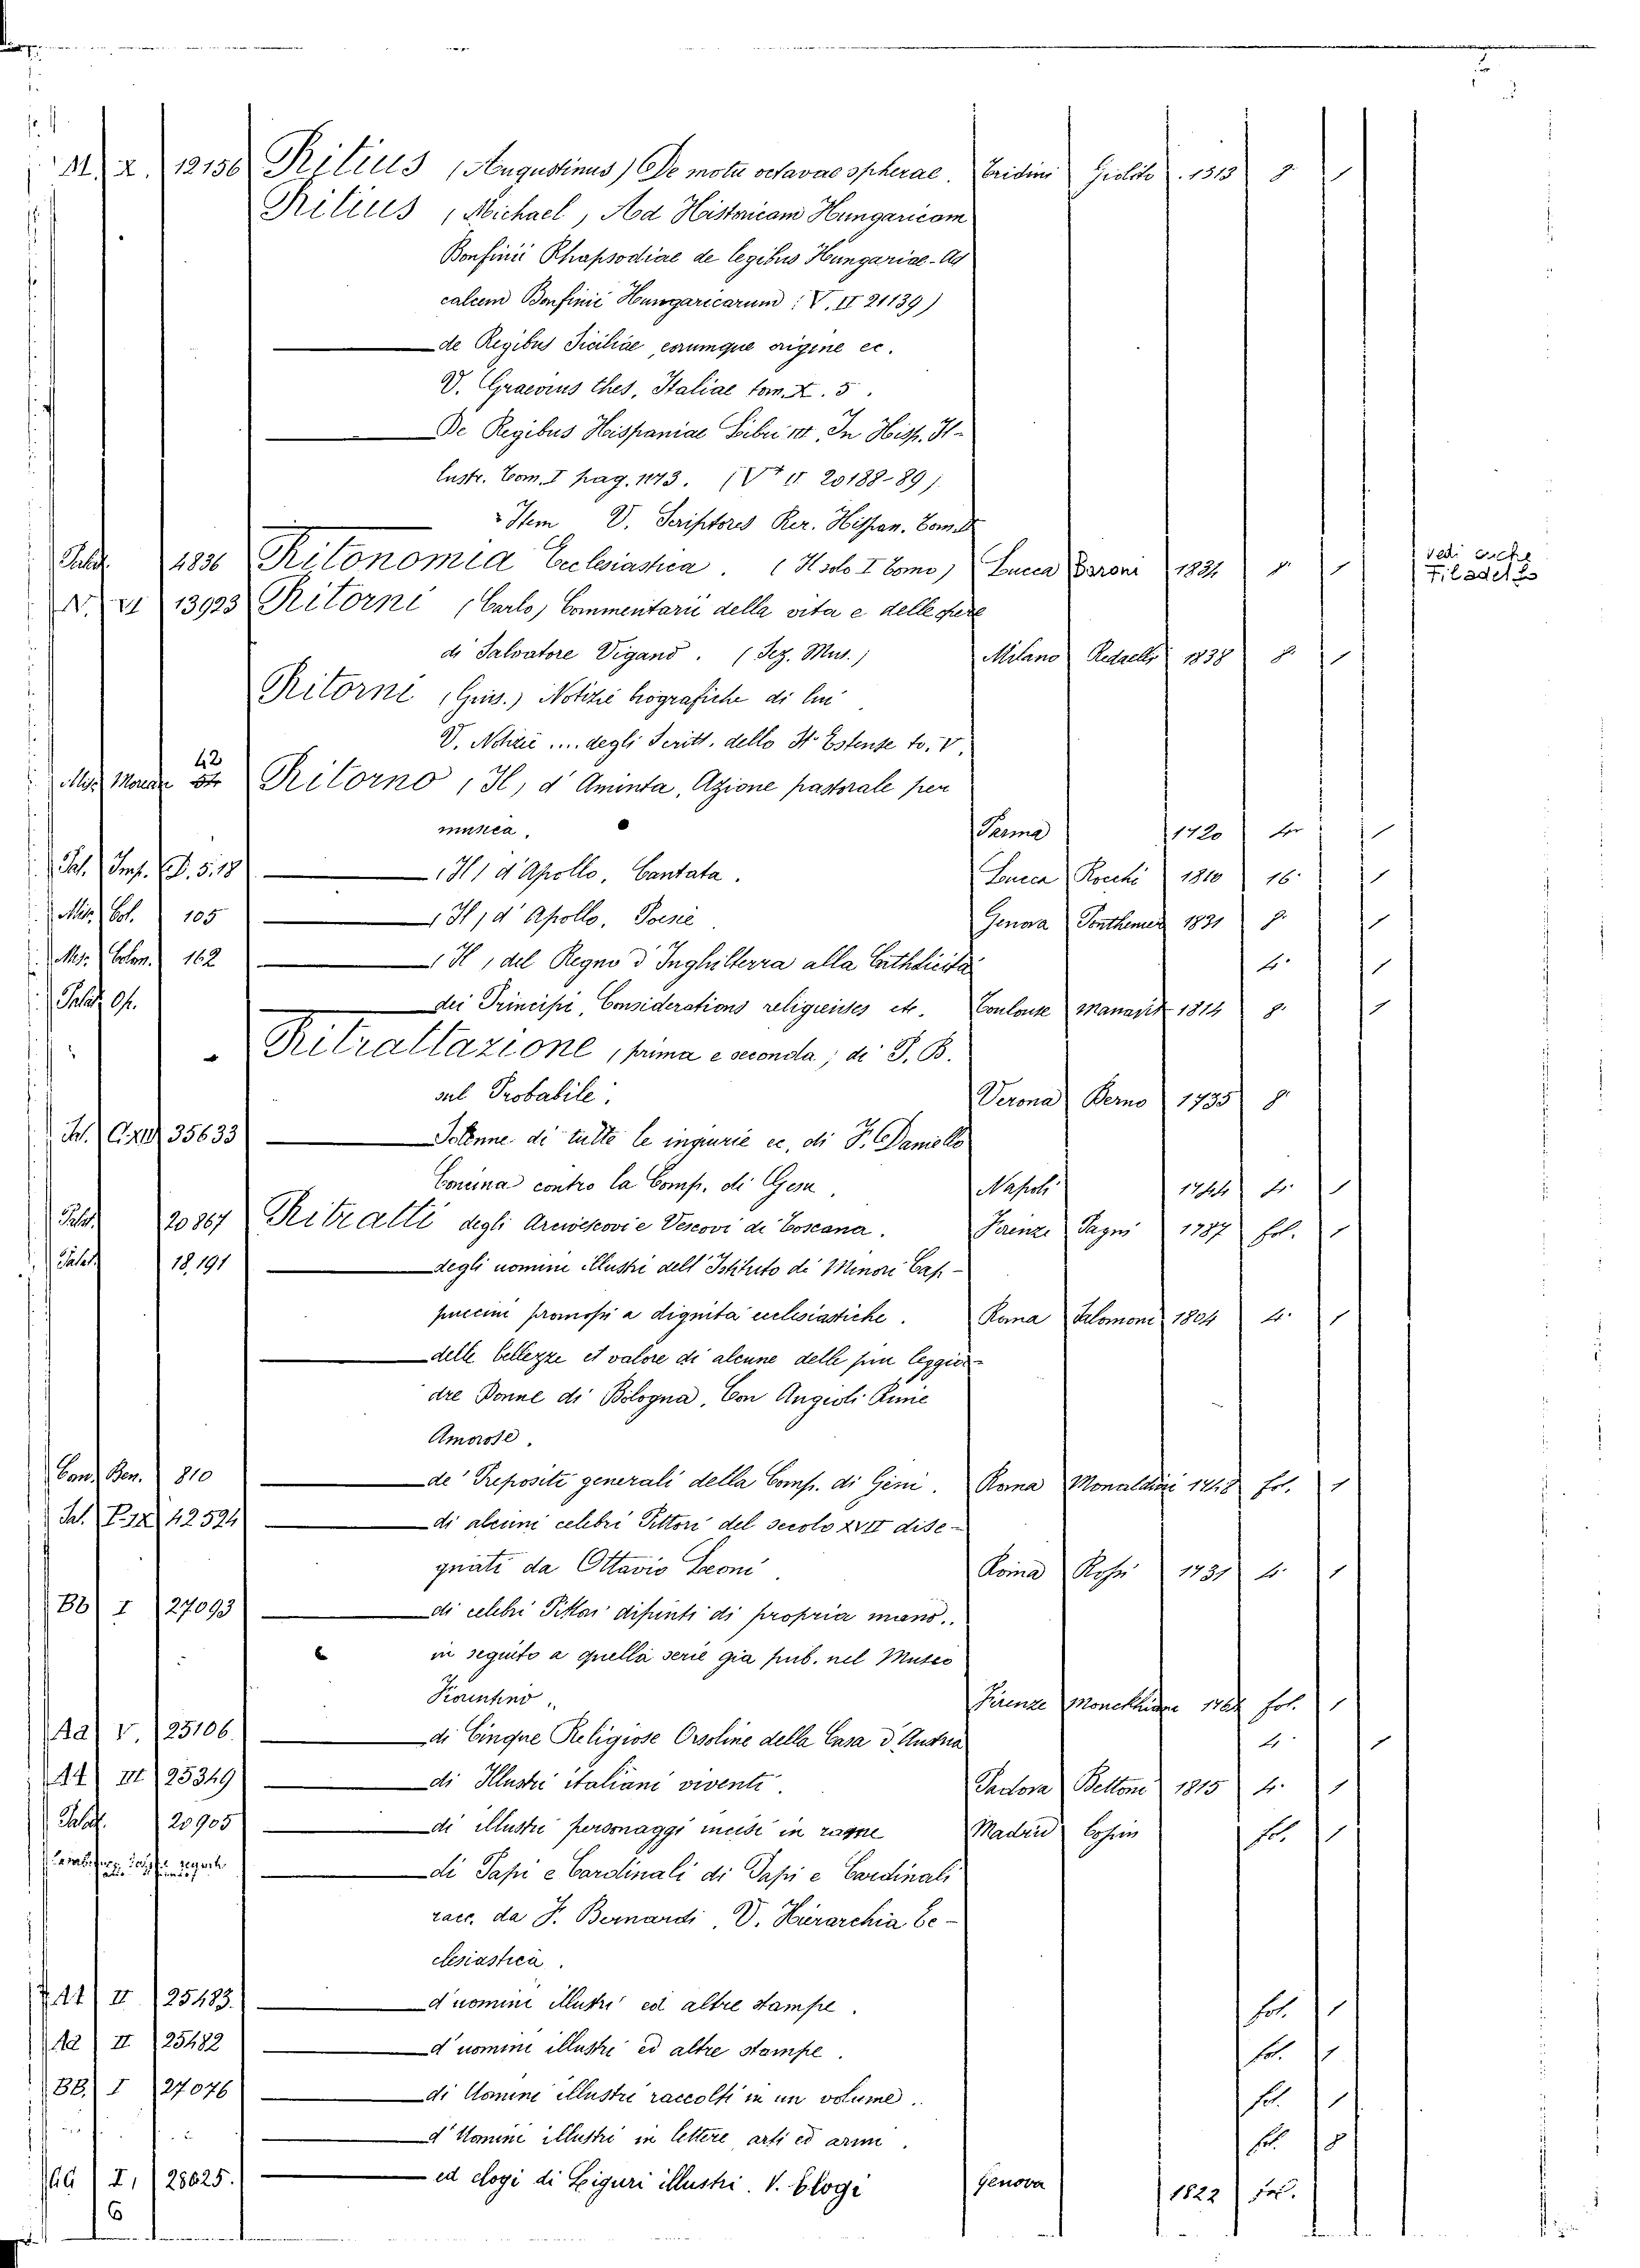 M. 2. 12156 Ritius (Augustinus) De motu octavae spherae. Tridini Giolito 1513 8. 1
Ritius, Michael, Ad Historicam Hungaricam
Bonfinii Rhapsodiae de legibus Hungariae - Ad
calcem Bonfinii Hungaricarum (V. II 21139)
de Regibus Siciliae, eorumque origine ec.
V. Graevius thes, Italiae tom. X. 5.
De Regibus Hispaniae Libri III, In Hisp. Il-
lustr. Tom. I pag. 1173. (V II 20188-89)
Item V. Scriptores Rer. Hispan. Tom.
Palat. 4836 Ritonomia Ecclesiastica. (Il solo I Tomo) Lucca Baroni 1821 8. 1 vedi anche
N. VI 13923 Ritorni, Carlo, Commentarii della vita e delle opere
di Salvatore Vigano. (Sez. Mus.) Milano Redaelli 1838 8. 1
Ritorni (Gius.) Notizie biografiche di lui
V. Notizie .... degli Scritt. dello St. Estense to. V.
42
Misc. Ritorno, Il, d' Aminta, Azione pastorale per
musica. Parma 1720 1
Pal. Imp. D. 5. 18 (Il) d' Apollo, Cantata. Lucca Rocchi 1810 16. 1
Misc. Col. 105 (Il) d' Apollo, Poesie Genova Ponthenier 1831 8. 1
Misc. Colon. 162 (Il, del Regno d' Inghilterra alla Catholicità 4. 1
Palat. Op. dei Principi, Considerations religieuses etc. Toulouse Manavit 1814 8. 1
Ritrattazione, prima e seconda, di P. B.
sul Probabile. Verona Berno 1735 8
35633 Solenne di tutte le ingiurie ec. di F. Daniello
Concina contro la Comp. di Gesu. Napoli 1744 4. 1
Palat. 20867 Ritratti degli Arcivescovi e Vescovi di Toscana. Firenze Pagni 1787 fol. 1
Palat. 18,191 degli uomini illustri dell' Istituto di Minori Cap-
puccini promossi a dignità ecclesiastiche. Roma Salomoni 1804 4. 1
delle bellezze et valore di alcune delle piu leggier-
dre Donne di Bologna, Con Angioli Rime
Amorose.
Con. Ben. 810 de' Prepositi generali della Comp. di Gesu. Roma Monaldini 1748 fol. 1
42524 di alcuni celebri Pittori del secolo XVII dise-
gnati da Ottavio Leoni Roma Rossi 1731 4. 1
Bb I 27093 di celebri Pittori dipinti di propria mano.
in seguito a quella serie gia pub. nel Museo
Fiorentino. Firenze 1764 fol. 1
Aa V 25106 di Cinque Religiose Orsoline della Casa d' Austria 4. 1
Aa III 25349 di Illustri italiani viventi. Padova Bettoni 1815 4. 1
Palat. 20905 di illustri personaggi incisi in rame Madrid fol. 1
di Papi e Cardinali di Papi e Cardinali
racc. da F. Bernardi, V. Hierarchia Ec-
clesiastica.
Aa II 25483. d'uomini illustri ed altre stampe. fol. 1
Aa II 25482 d' uomini illustri ed altre stampe. fol. 1
BB. I 27076 di Uomini illustri raccolti in un volume. fol. 1
d' Uomini illustri in lettere arti ed armi. fol. 8
I, 28625. ed elogi di Liguri illustri. V. Elogi Genova 1822 fol.
6